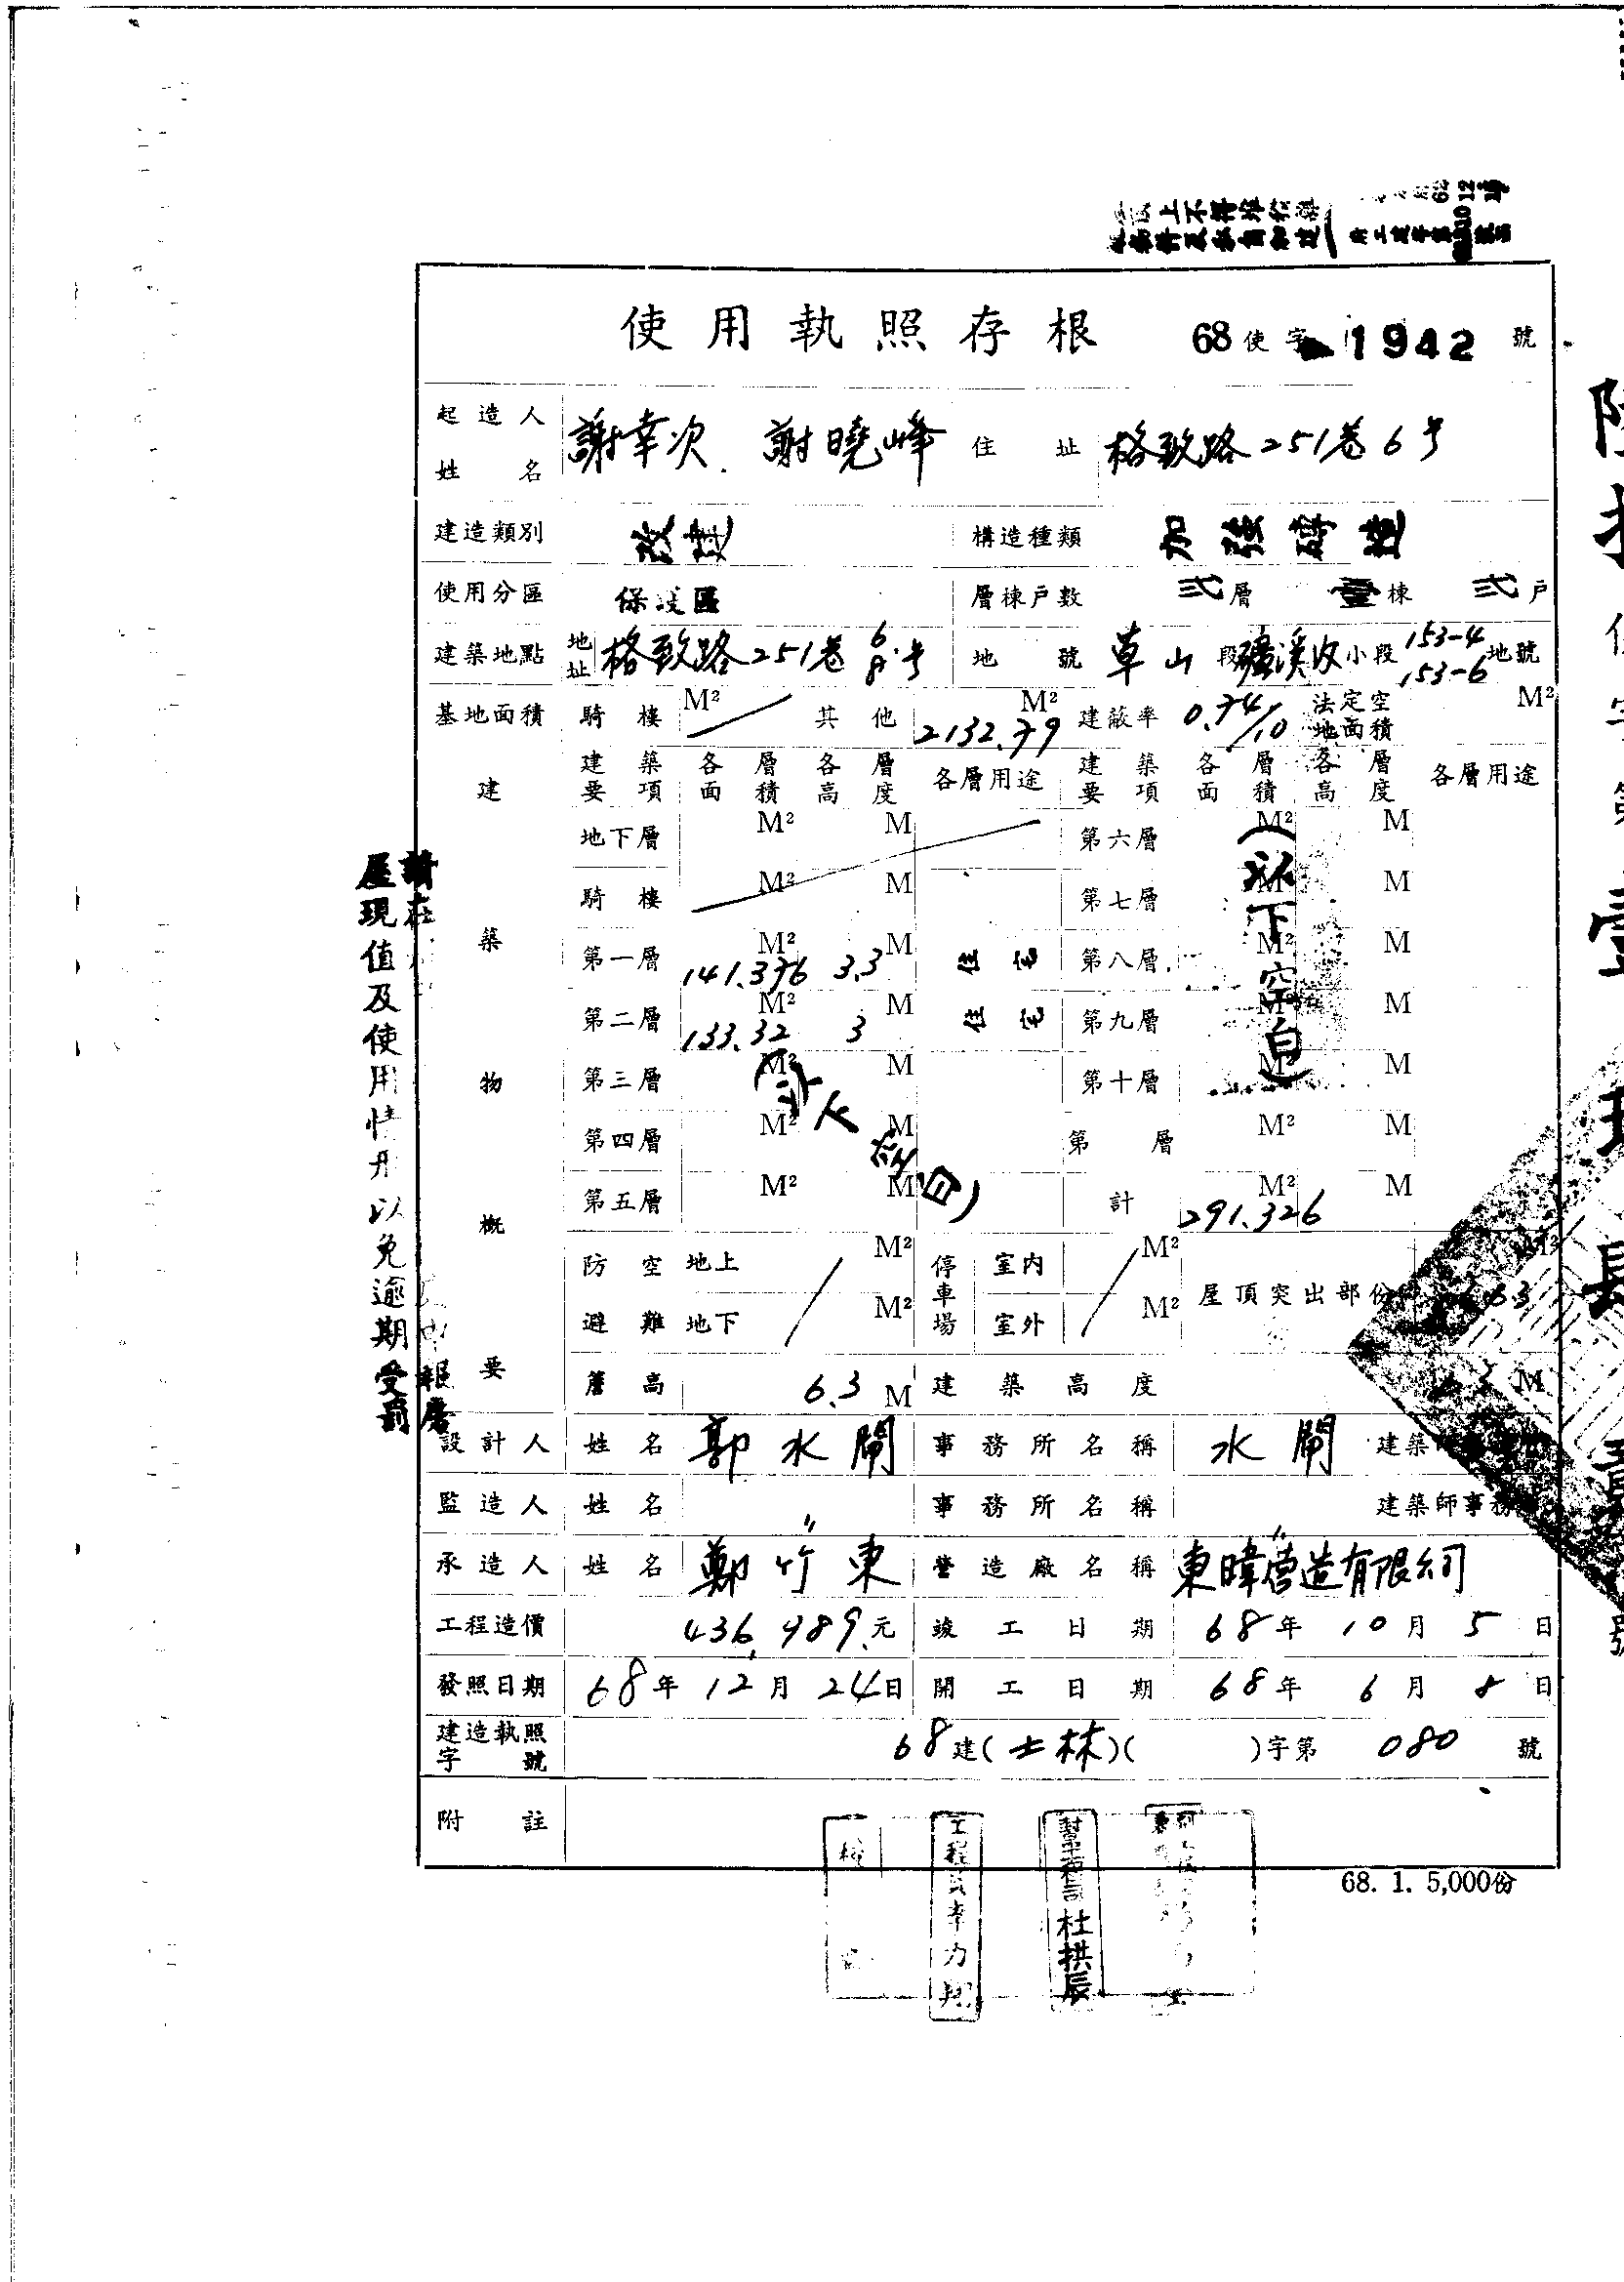 使用執照存根 68使字 1942 號
起造人姓名 謝幸次 謝曉峰 住址 格致路251巷6号
建造類別 改建 構造種類 加強磚造
使用分區 保護區 層棟戶數 弍層 壹棟 弍戶
建築地點 地址 格致路251巷6.8号 地號 草山段 小段 153-4 153-6 地號
基地面積 騎樓 M² 其他 2132.79 M² 建蔽率 0.74/10 法定空地面積 M²
建築物概要
建築要項 各層面積 各層高度 各層用途 建築要項 各層面積 各層高度 各層用途
地下層 M² M 第六層 M² M
騎樓 M² M 第七層 M² M
第一層 141.376 M² 3.3 M 住宅 第八層 M² M
第二層 133.32 M² 3 M 住宅 第九層 M² M
第三層 M² M 第十層 M² M
第四層 M² M 第 層 M² M
第五層 M² M 計 291.326 M² M
(以下空白)
(以下空白)
防空避難 地上 M² 地下 M² 停車場 室內 M² 室外 M² 屋頂突出部份
簷高 6.3 M 建築高度 M
設計人 姓名 郭水閘 事務所名稱 水閘 建築
監造人 姓名 〃 事務所名稱 〃 建築師事務
承造人 姓名 鄭竹東 營造廠名稱 東暐營造有限公司
工程造價 436,989.元 竣工日期 68年10月5日
發照日期 68年12月24日 開工日期 68年6月8日
建造執照字號 68建(士林)( )字第 080 號
附註
屋現值及使用情形以免逾期受罰
杜拱辰
68. 1. 5,000份